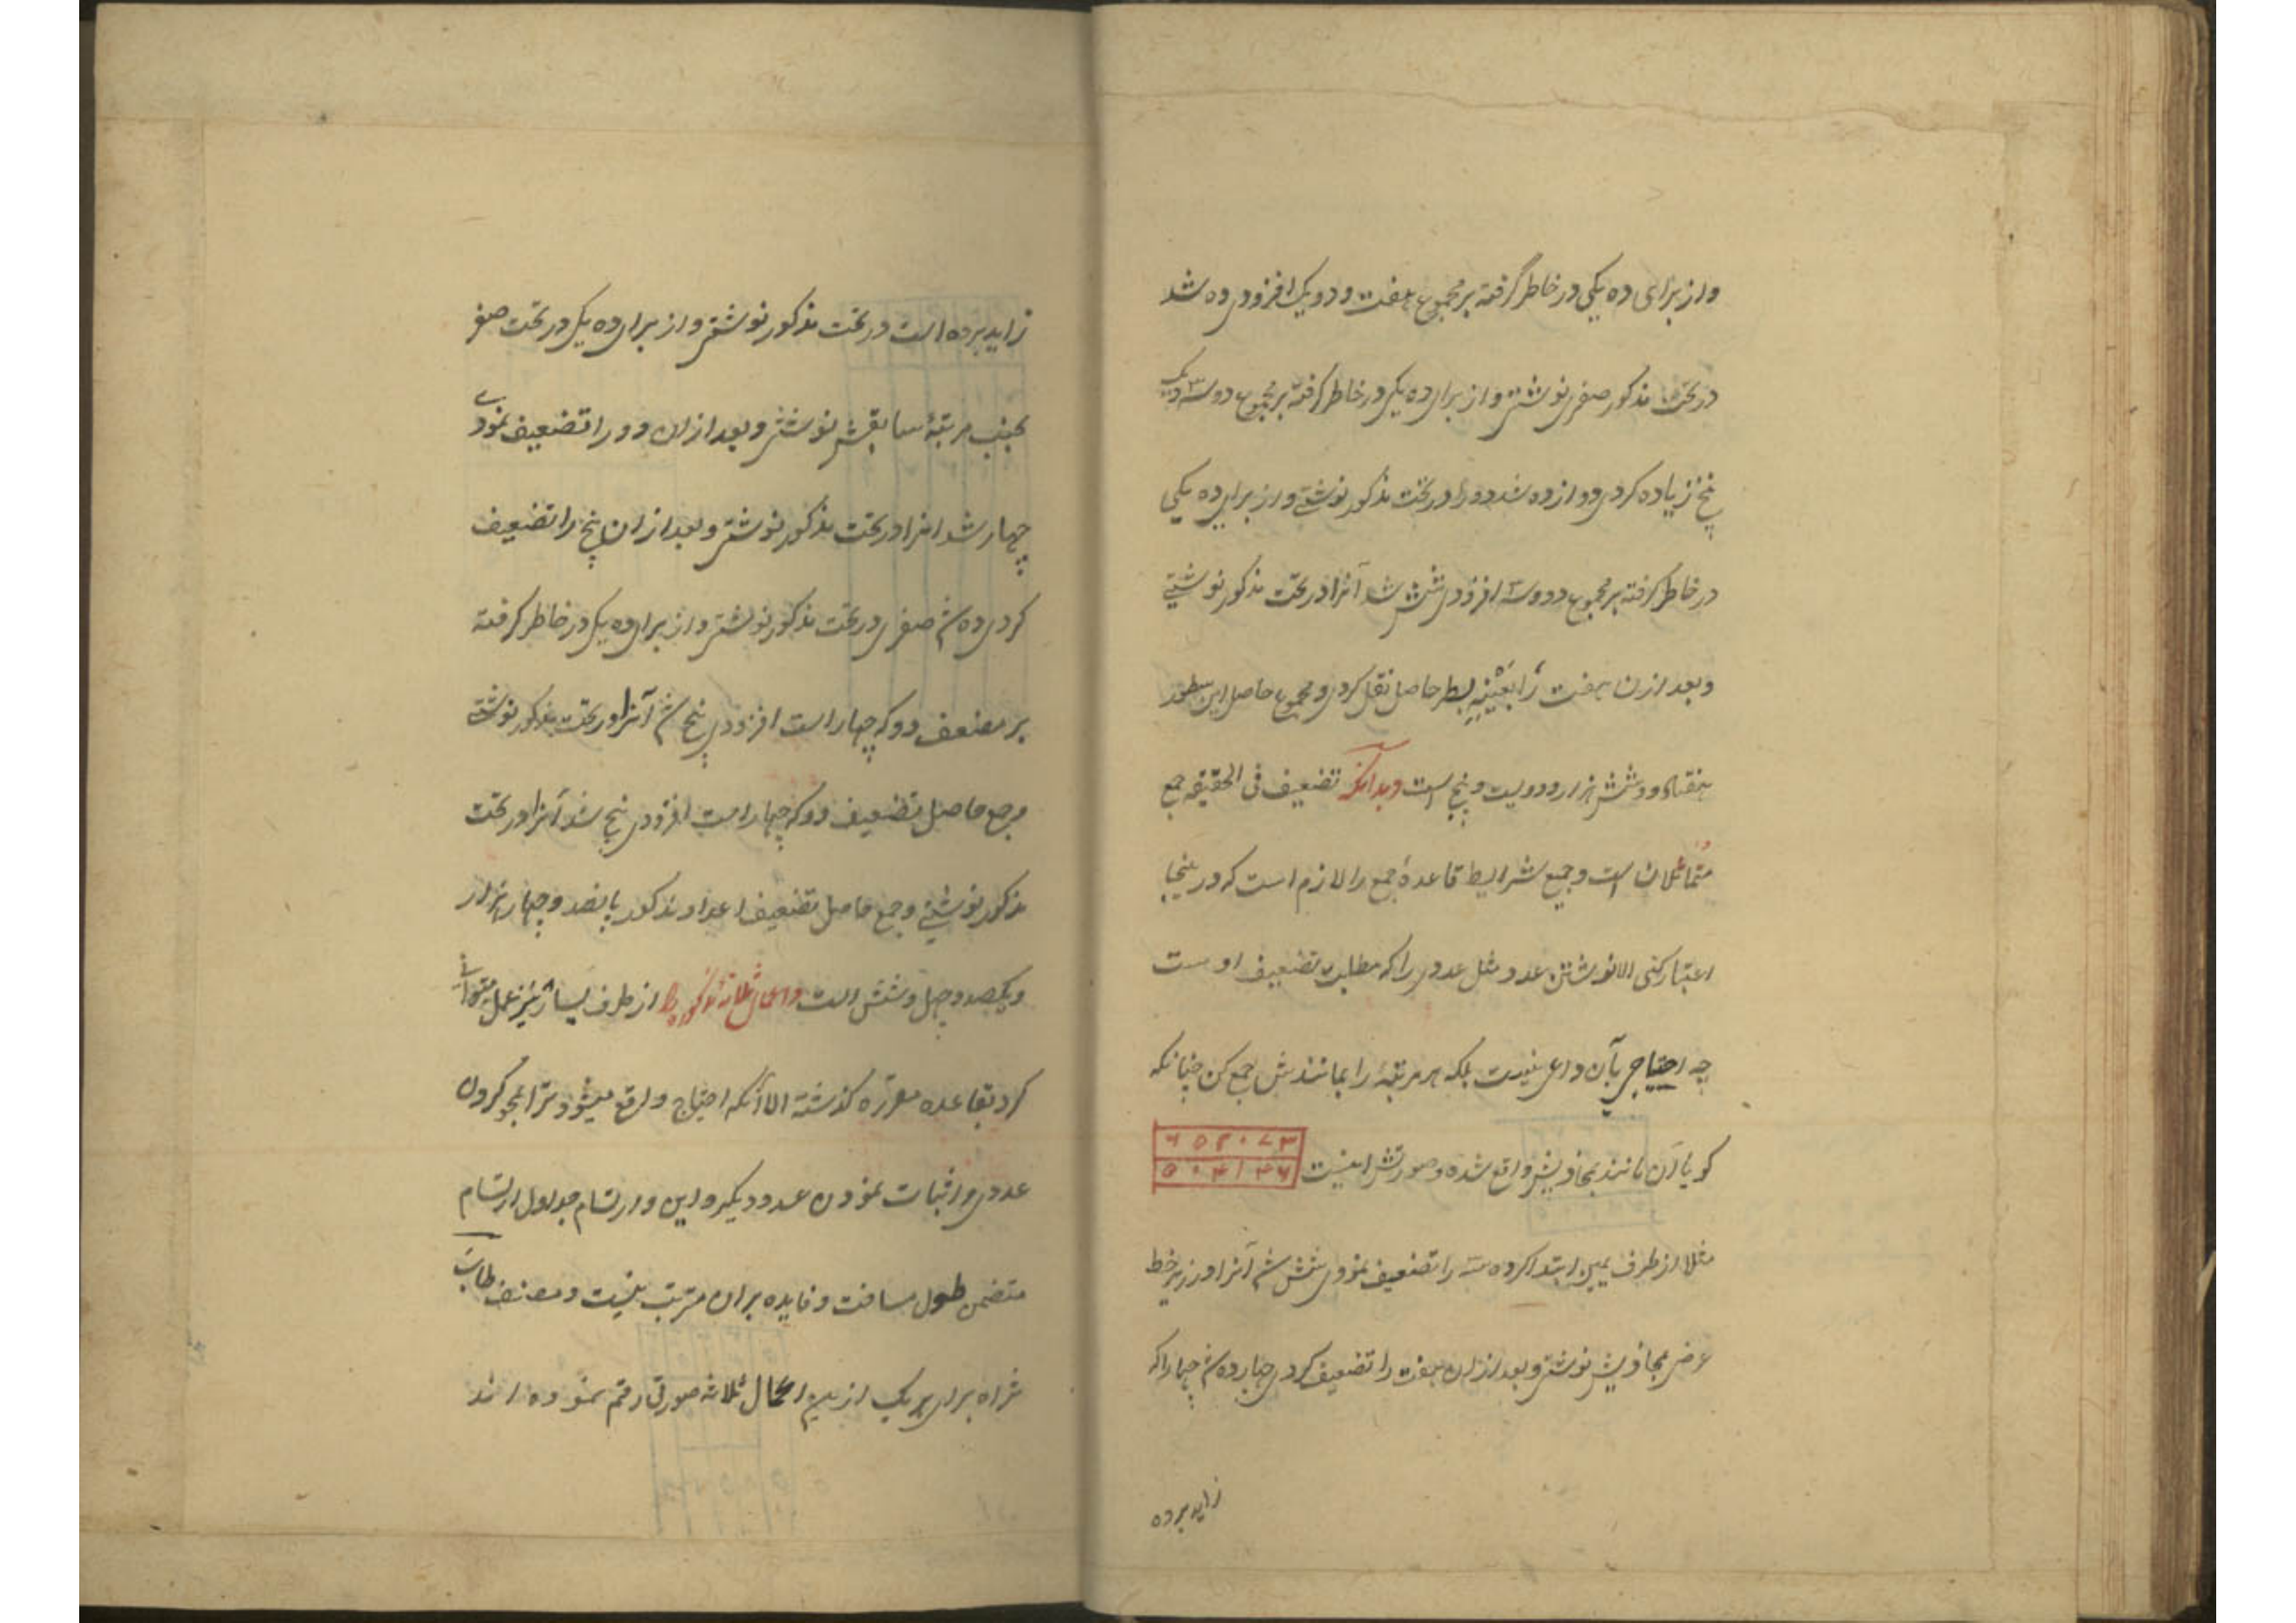 واز برای ده یکی در خاطر گرفته بر مجموع هفت و دو یک افزودی ده شد
در تحت مذکور صفری نوشتی و از برای ده یکی در خاطر گرفته بر مجموع دو سه و یک
پنج زیاده کردی دوازده شد دو را در تحت مذکور نوشتی و از برای ده یکی
در خاطر گرفته بر مجموع دو و سه افزودی شش شد آنرا در تحت مذکور نوشتی
و بعد ازان هفت را بعینه بسطر حاصل نقل کردی و مجموع حاصل این سطور
هفتاد و شش هزار و دویست و پنج است و بدانکه تضعیف فی الحقیقه جمع
متماثلان است و جمیع شرایط قاعدهٔ جمع را لازم است که در اینجا
اعتبار کنی الا نوشتن عدد مثل عددی را که مطلب تضعیف اوست
چه احتیاجی بآن داعی نیست بلکه هر مرتبهٔ را بمانندش جمع کن چنانکه
کویا آن مانند بمحاذیش واقع شده و صورتش اینست
۲۵۲۰۷۳
۵۰۴۱۴۶
مثلا از طرف یمین ابتدا کرده سه را تضعیف نمودی شش شد آنرا در زیر خط
عرضی بمحاذیش نوشتی و بعد ازان هفت را تضعیف کردی چهارده شد چهار را که
زاید برده
زاید برده است در تحت مذکور نوشتی و از برای ده یکی در تحت صفر
بجنب مرتبهٔ سابقش نوشتی و بعد ازان دو را تضعیف نمودی
چهار شد انرا در تحت مذکور نوشتی و بعد ازان پنج را تضعیف
کردی ده شد صفری در تحت مذکور نوشتی و از برای ده یکی در خاطر گرفته
بر مضعف دو که چهار است افزودی پنج شد آنرا در تحت مذکور نوشتی
حاصل تضعیف دو که چهار است افزودی پنج شد آنرا در تحت
مذکور نوشتی و جمع حاصل تضعیف اعداد مذکور پانصد و چهار هزار
و یکصد و چهل و شش است و اعمال ثلاثه مذکوره را از طرف یسار نیز عمل میتوانی
کرد بقاعده مقرره کذشته الا آنکه احتیاج واقع میشود ترا بمحو کردن
عددی و اثبات نمودن عدد دیگر و این و ارتسام جداول ارتسام
متضمن طول مسافت و فایده بران مترتب نیست و مصنف طاب
ثراه برای هر یک ازین اعمال ثلاثه صورتی رقم نموده اند